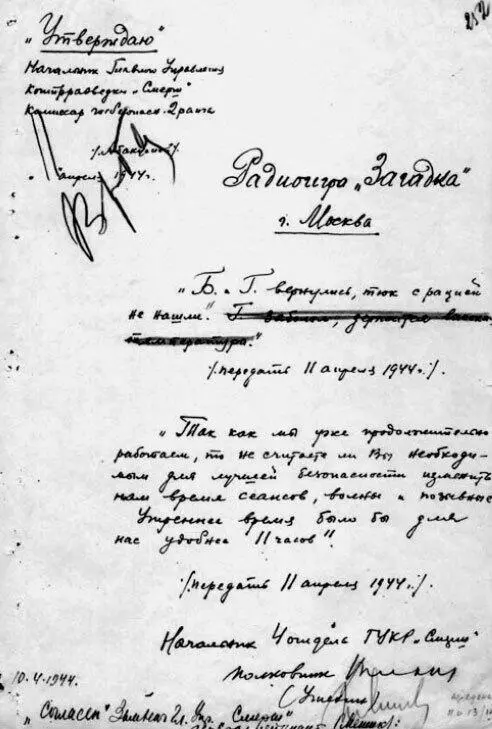 252
„Утверждаю"
Начальник Главного Управления
Контрразведки „Смерш"
Комиссар госбезопасн. 2 ранга
/Абакумов/.
" " апреля 1944г.
Радиоигра „Загадка"
г. Москва
„Б. и Г. вернулись, тюк с рацией
не нашли." Г. заболел, держится высокая
температура."
/передать 11 апреля 1944г./.
„Так как мы уже продолжительно
работаем, то не считаете ли Вы необходи-
мым для лучшей безопасности изменить
нам время сеансов, волны и позывные
Утреннее время было бы для
нас удобнее 11 часов".
/передать 11 апреля 1944г./.
Начальник 4 отдела ГУКР „Смерш"
полковник
(Утехин)
10.4.1944.
„Согласен" Зам. Нач. Гл. Упр. „Смерш"